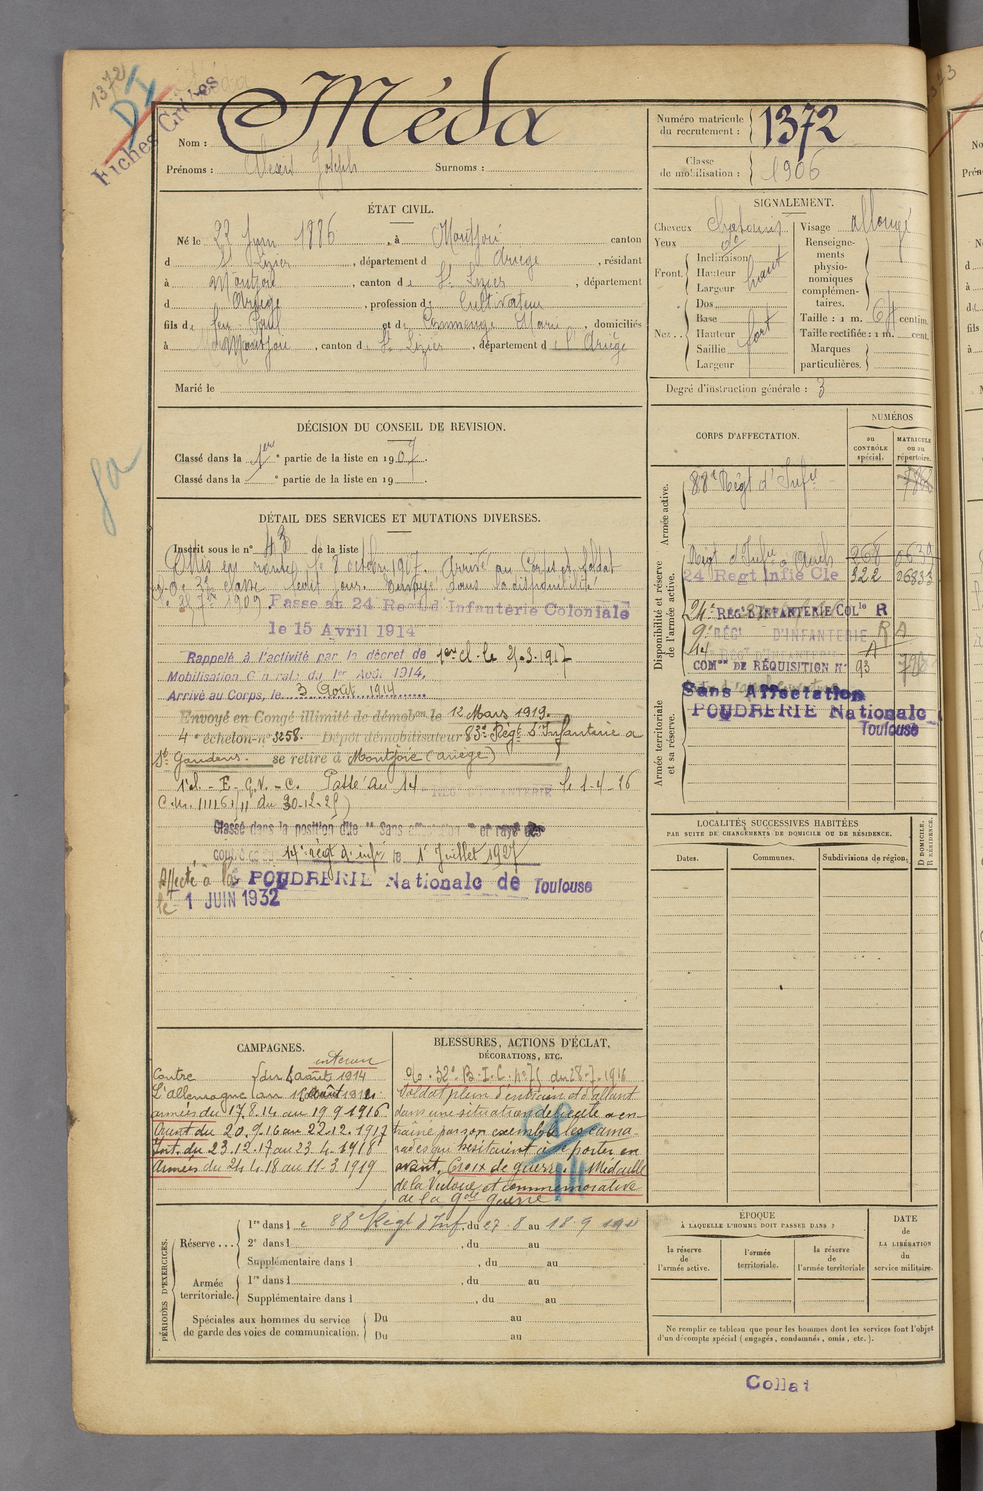 1372
Fiches Civiles
Nom : Méda
Prénoms : Joseph Surnoms :
Numéro matricule
du recrutement : 1372
Classe
de mobilisation : 1906
ÉTAT CIVIL.
Né le 23 Juin 1886, à Montjoie canton
d St Lizier, département d Ariège, résidant
à Montjoie, canton de St Lizier, département
d Ariège, profession de Cultivateur
fils de feu Paul et de Marie, domiciliés
à Montjoie, canton d St Lizier, département d e l'Ariège
Marié le
SIGNALEMENT.
Cheveux Châtains
Yeux do
Front. Inclinaison
Hauteur haut
Largeur
Nez .. Dos
Base
Hauteur fort
Saillie
Largeur
Visage allongé
Renseigne-
ments
physio-
nomiques
complémen-
taires.
Taille : 1 m. 64 centim.
Taille rectifiée : 1 m. cent.
Marques
particulières.
Degré d'instruction générale : 3
DÉCISION DU CONSEIL DE REVISION.
Classé dans la 1ere partie de la liste en 1907.
Classé dans la e partie de la liste en 19
CORPS D'AFFECTATION.
NUMÉROS
au
CONTRÔLE
spécial.
MATRICULE
OU DU
répertoire.
Armée active.
88e Régt d'Infie
Disponibilité et réserve
de l'armée active.
Regt d'Infie Auch 268
24 Regt Infie Cle 322 06833
24e REGt D'INFANTERIE Colle R
9e RÉGt D'INFANTERIE R A
14 A
COMon DE RÉQUISITION No 93
Armée territoriale
et sa réserve.
Sans Affectation
POUDRERIE Nationale
Toulouse
DÉTAIL DES SERVICES ET MUTATIONS DIVERSES.
Inscrit sous le no 43 de la liste
Mis en route le 8 octobre 1907. Arrivé au Corps et soldat
de 2e classe ledit jour. Envoyé dans la disponibilité
le 25 7bre 1909 Passe au 24 Regt d'Infanterie Coloniale
le 15 Avril 1914
Rappelé à l'activité par le décret de 1ere cl. le 21-3-1917
Mobilisation Générale du 1er Août 1914,
Arrivé au Corps, le 3 Août 1914
Envoyé en Congé illimité de démobon le 12 Mars 1919.
4e échelon no 3258. Dépôt démobilisateur 83e Régt d'Infanterie à
St Gaudens. se retire à Montjoie (Ariège)
Passé au 14 e REGt D'INFANTERIE le 1-4-26
Classé dans la position dite "Sans affectation" et rayé des
contrôles du 14e régt d'infie le 1er Juillet 1927
Affecté à la POUDRERIE Nationale de Toulouse
le 1 JUIN 1932
LOCALITÉS SUCCESSIVES HABITÉES
PAR SUITE DE CHANGEMENTS DE DOMICILE OU DE RÉSIDENCE.
Dates. Communes. Subdivisions de région.
D DOMICILE.
R RÉSIDENCE.
CAMPAGNES.
intérieur
Contre du 4 août 1914
L'allemagne au 16 août 1914
armées du 17.8.14 au 19.9.1916
Orient du 20.9.16 au 22.12.1917
Int. du 23.12.17 au 23.4.1918
Armées du 24.4.18 au 11.3.1919
BLESSURES, ACTIONS D'ÉCLAT,
DÉCORATIONS, ETC.
O/. 32e B.I.C. no 75 du 28-7-1916
Soldat plein d'entrain et d'allant
dans une situation délicate a en-
traîné par son exemple les cama-
rades qui hésitaient à se porter en
avant. Croix de guerre. Médaille
de la Victoire et commémorative
de la gde guerre
PÉRIODES D'EXERCICES.
Réserve ... 1re dans le 88e Régt d'Inf., du 27.8 au 18.9 1911
2e dans l , du au
Supplémentaire dans l , du au
Armée
territoriale. 1re dans l , du au
Supplémentaire dans l , du au
Spéciales aux hommes du service
de garde des voies de communication. Du au
Du au
ÉPOQUE
À LAQUELLE L'HOMME DOIT PASSER DANS :
la réserve
de
l'armée active.
l'armée
territoriale.
la réserve
de
l'armée territoriale
DATE
de
LA LIBÉRATION
du
service militaire.
Ne remplir ce tableau que pour les hommes dont les services font l'objet
d'un décompte spécial (engagés, condamnés, omis, etc.).
Collat